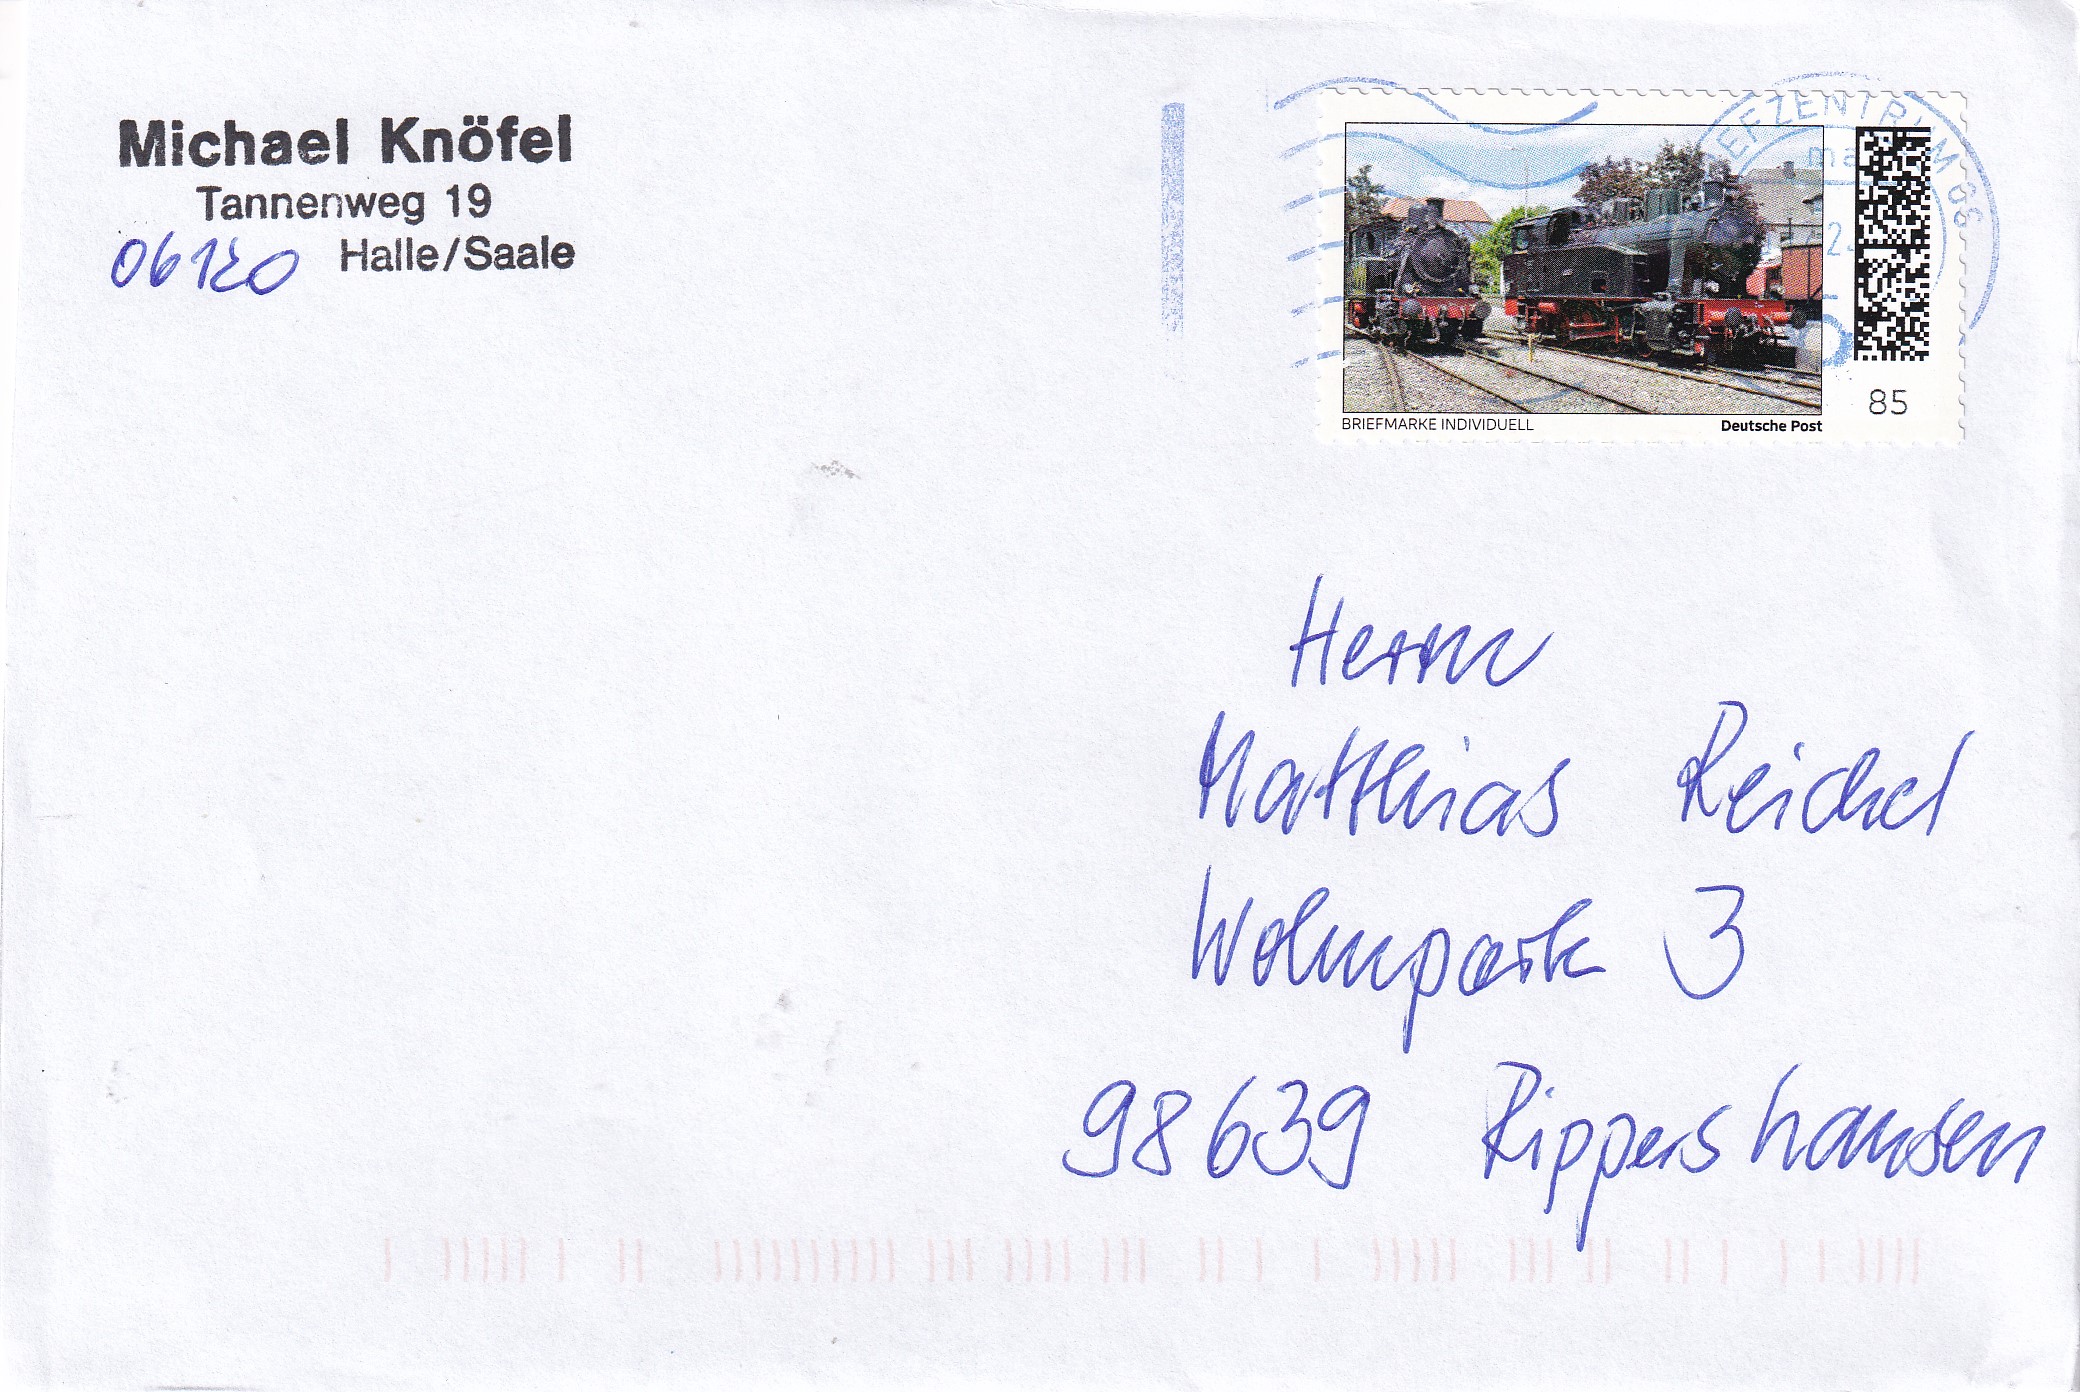 Michael Knöfel
Tannenweg 19
06120 Halle/Saale
BRIEFZENTRUM 06
BRIEFMARKE INDIVIDUELL
Deutsche Post
85
Herrn
Matthias Reichel
Wohnpark 3
98639 Rippershausen